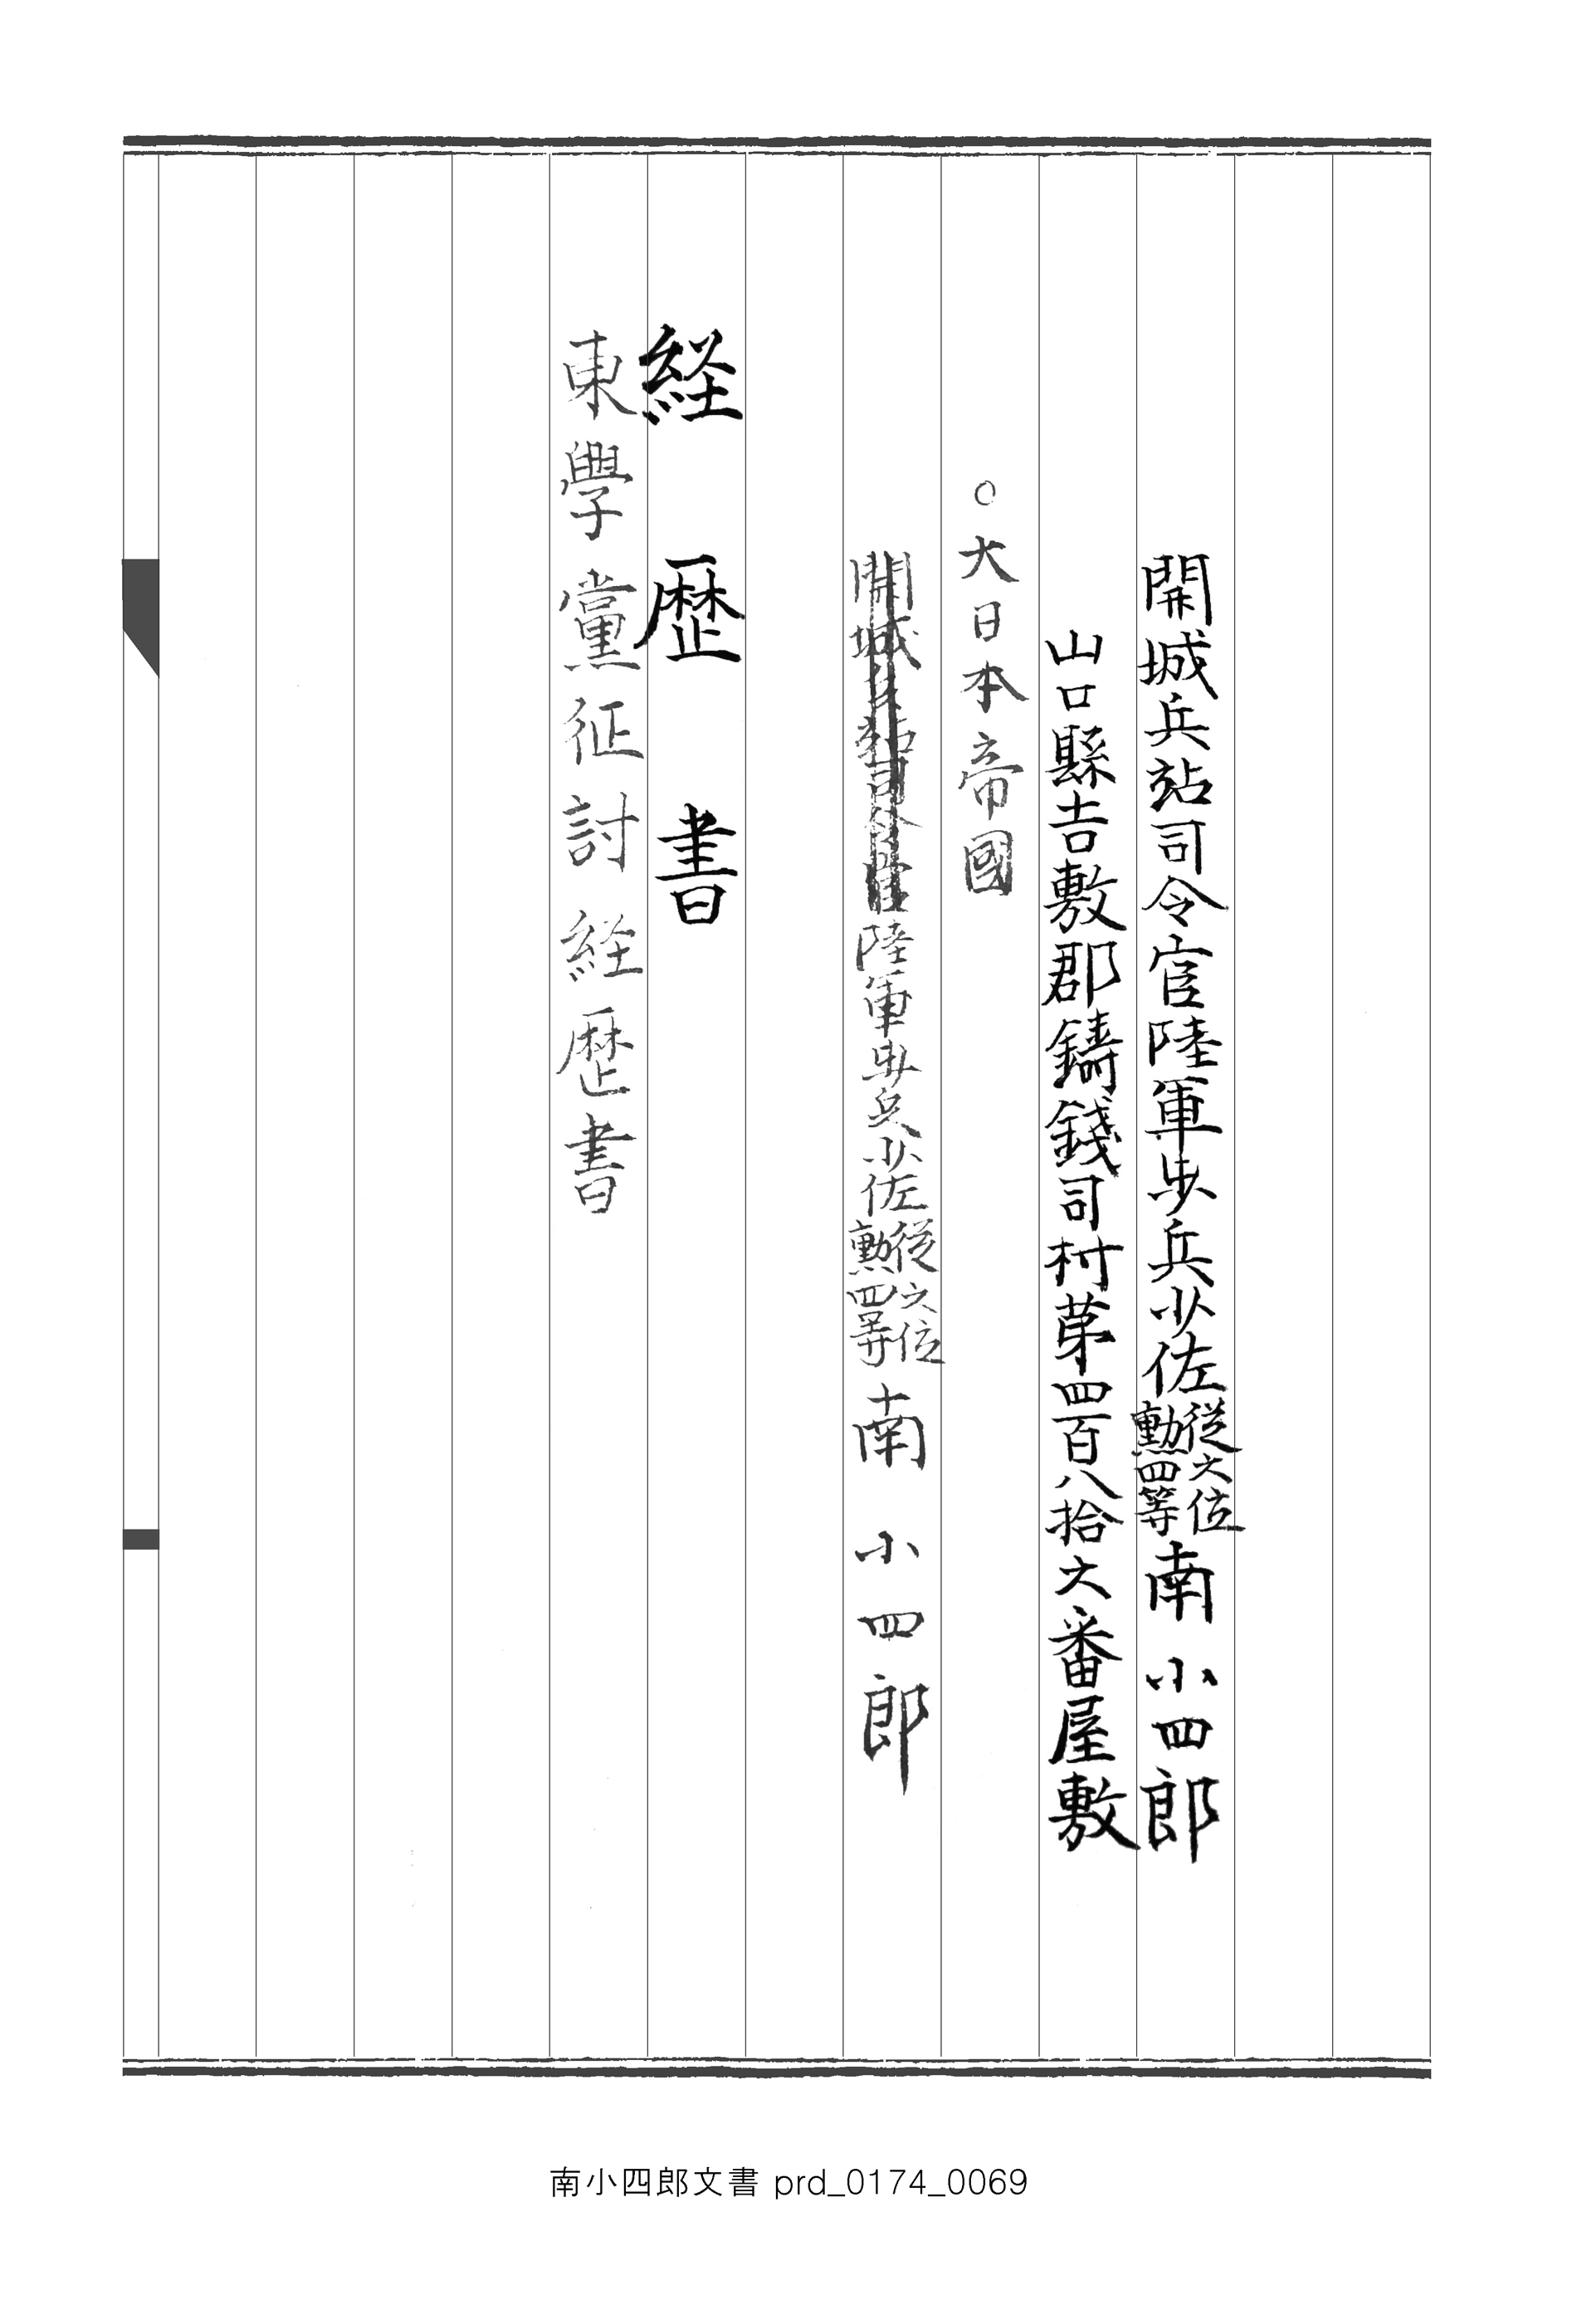 開城兵站司令官陸軍歩兵少佐從六位勲四等南小四郎
山口縣吉敷郡鑄錢司村苐四百八拾六番屋敷
○大日本帝國
開城兵站司令官陸軍歩兵少佐從六位勲四等南小四郎
経歴書
東學黨征討経歴書
南小四郎文書 prd_0174_0069